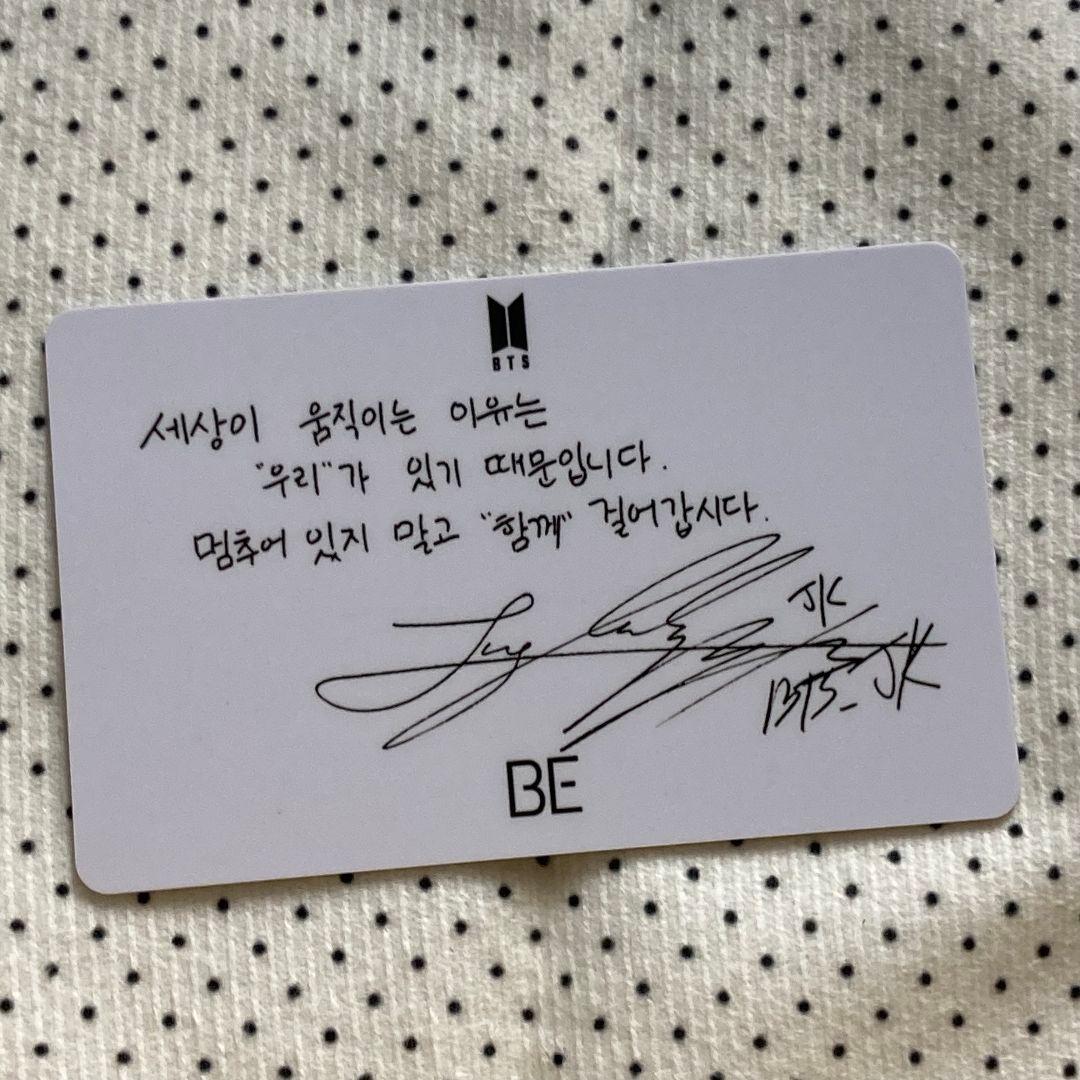 BTS
세상이 움직이는 이유는
"우리"가 있기 때문입니다.
멈추어 있지 말고 "함께" 걸어갑시다.
JK
BTS_JK
BE